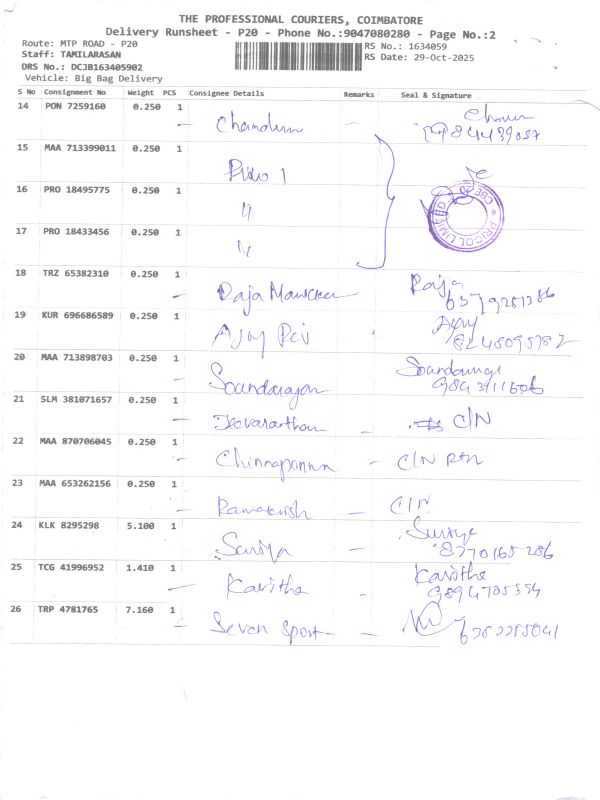 THE PROFESSIONAL COURIERS, COIMBATORE
Delivery Runsheet - P20 - Phone No.:9047080280 - Page No.:2
Route: MTP ROAD - P20
RS No.: 1634059
Staff: TAMILARASAN
RS Date: 29-Oct-2025
DRS No.: DCJB163405902
Vehicle: Big Bag Delivery
S No Consignment No Weight PCS Consignee Details Remarks Seal & Signature
14 PON 7259160 0.250 1
15 MAA 713399011 0.250 1
16 PRO 18495775 0.250 1
PRICOL LIMITED
17 PRO 18433456 0.250 1
18 TRZ 65382310 0.250 1
Raja Raja
19 KUR 696686589 0.250 1
Ajay
20 MAA 713898703 0.250 1
Soandarajan
21 SLM 381071657 0.250 1
C/N
22 MAA 870706045 0.250 1
- C/N
23 MAA 653262156 0.250 1
- C/N
24 KLK 8295298 5.100 1
- Suriya
25 TCG 41996952 1.410 1
- Kavitha - Kavitha
26 TRP 4781765 7.160 1
- Seven Sport - -